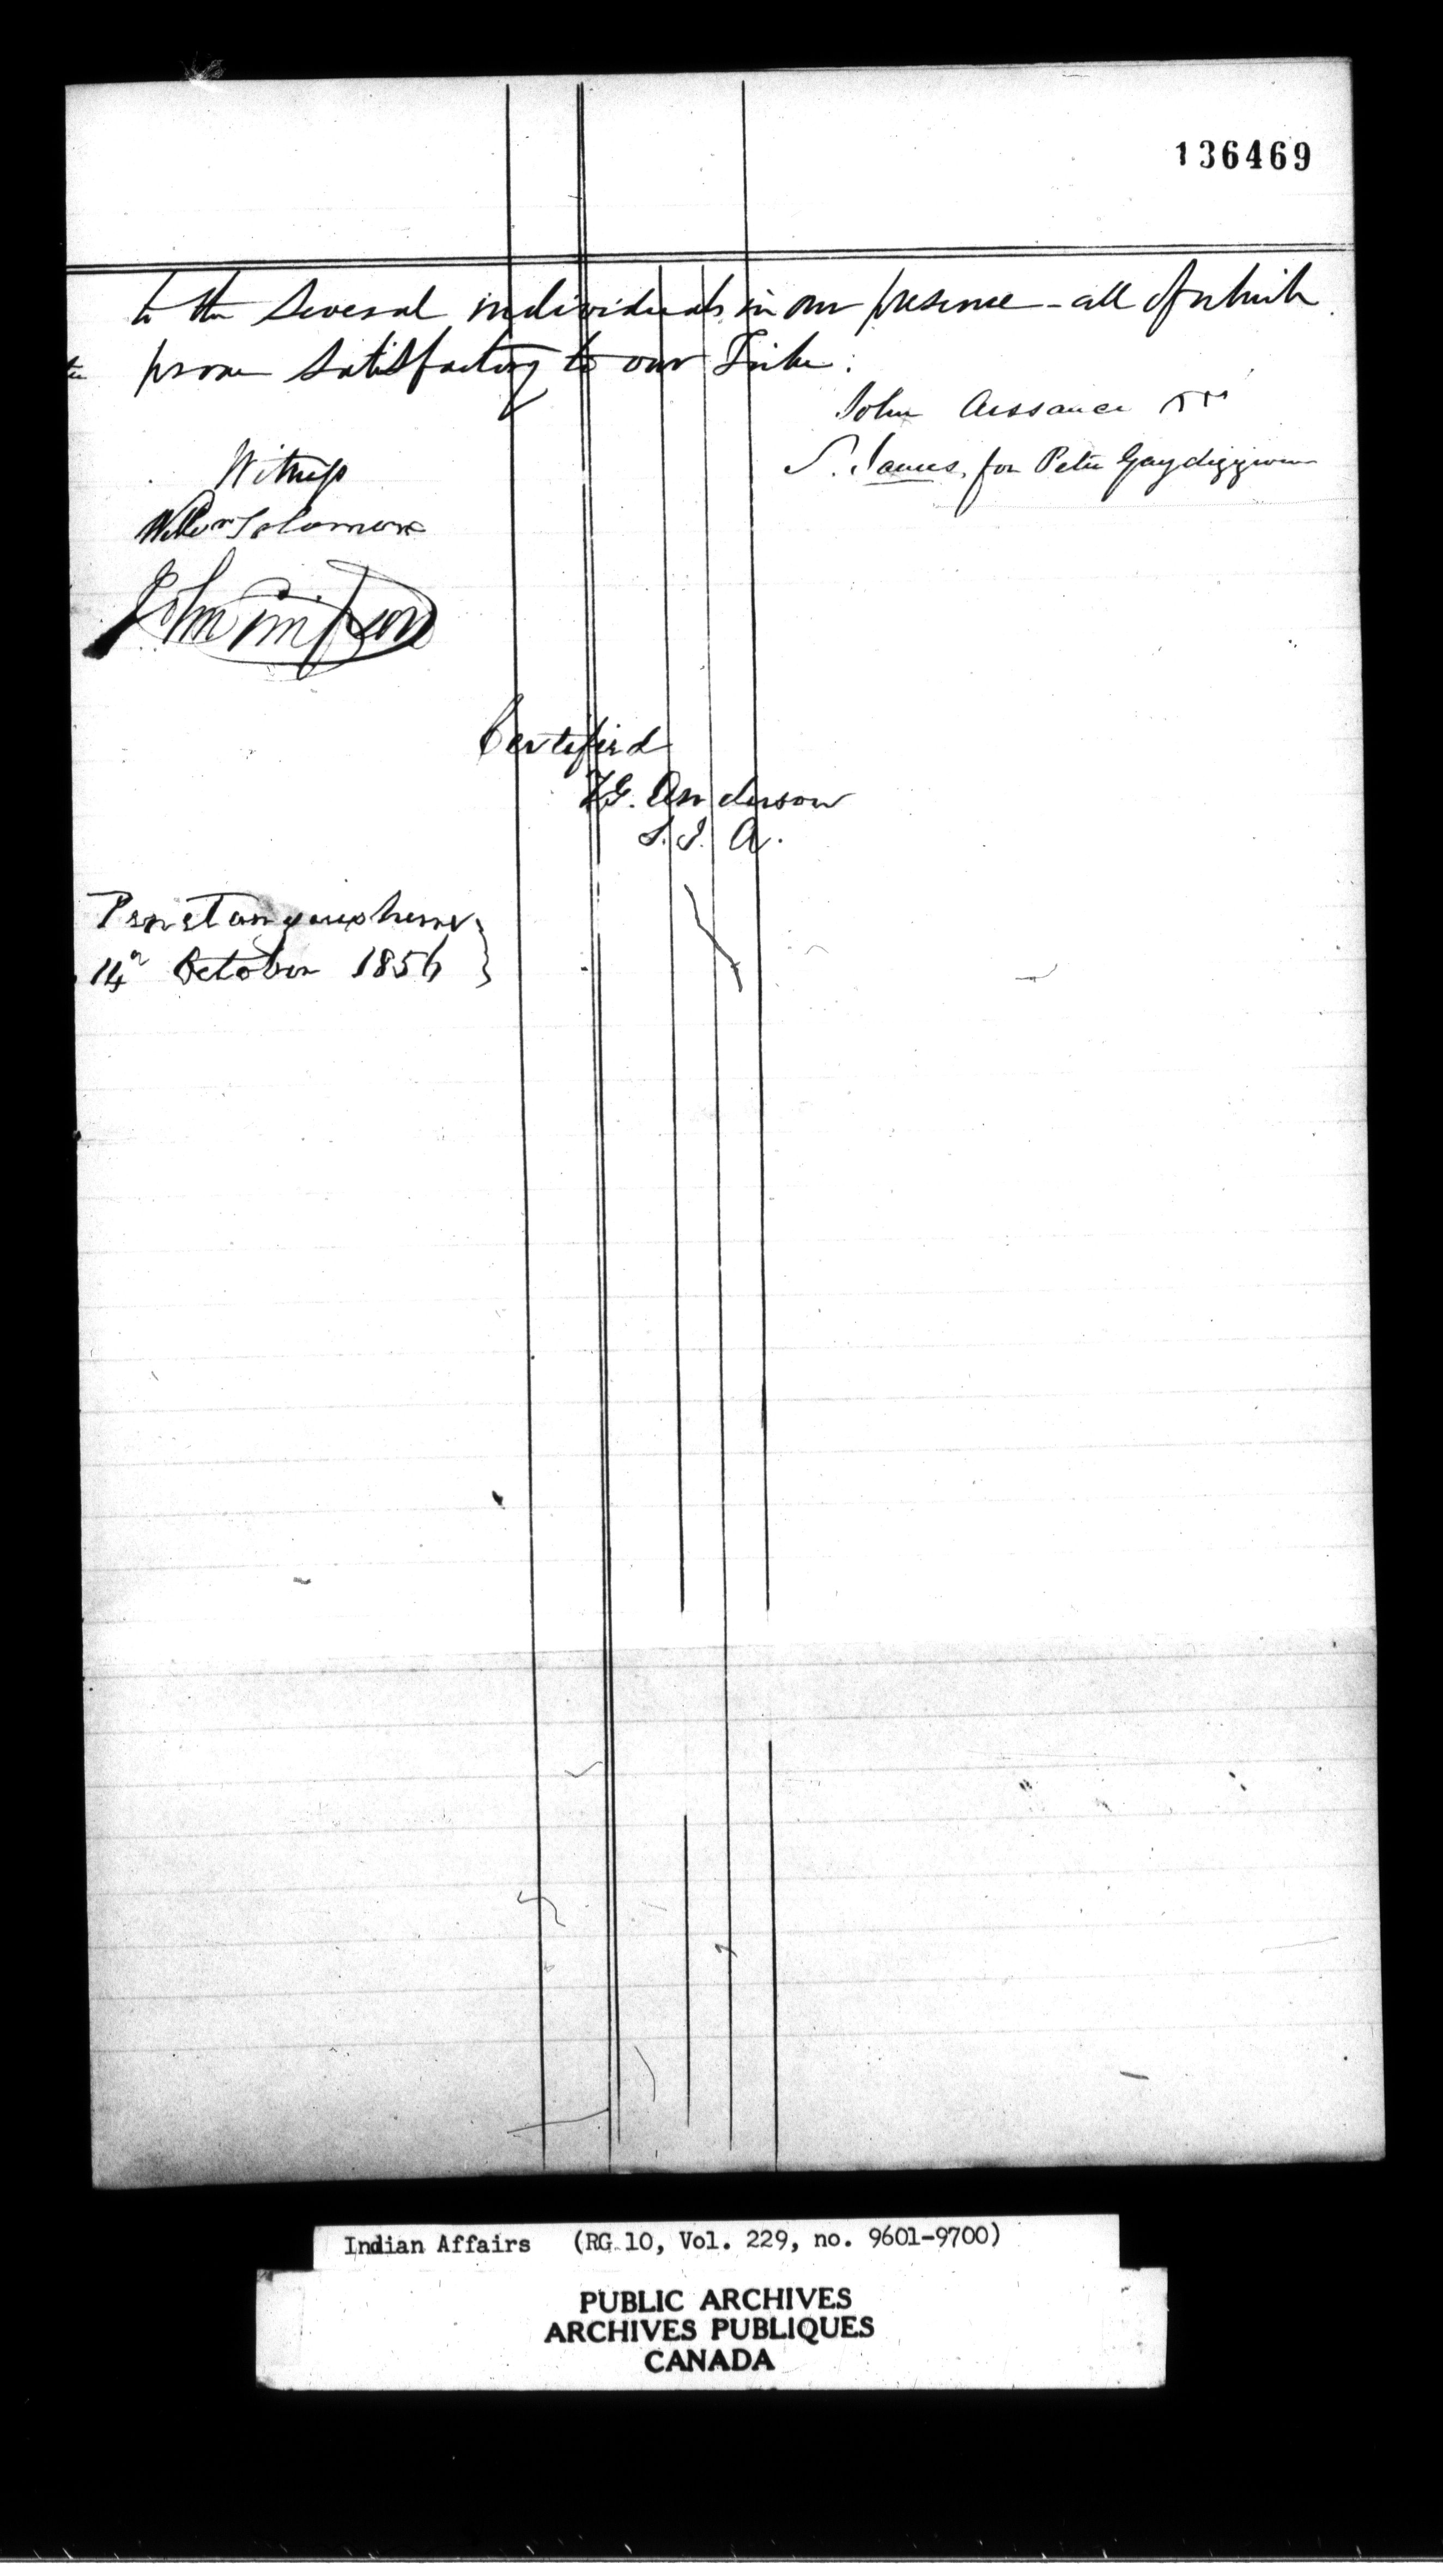 136469
to the several individuals in our presence - all of which
prove satisfactory to our Tribe.
John Aissance
S. James, for Peter Gaydiggwun
Witness
Willm Solomon
John Simpson
Certified
T.G. Anderson
S.I.A.
Penetanguishene
14th October 1856
Indian Affairs (RG 10, Vol. 229, no. 9601-9700)
PUBLIC ARCHIVES
ARCHIVES PUBLIQUES
CANADA